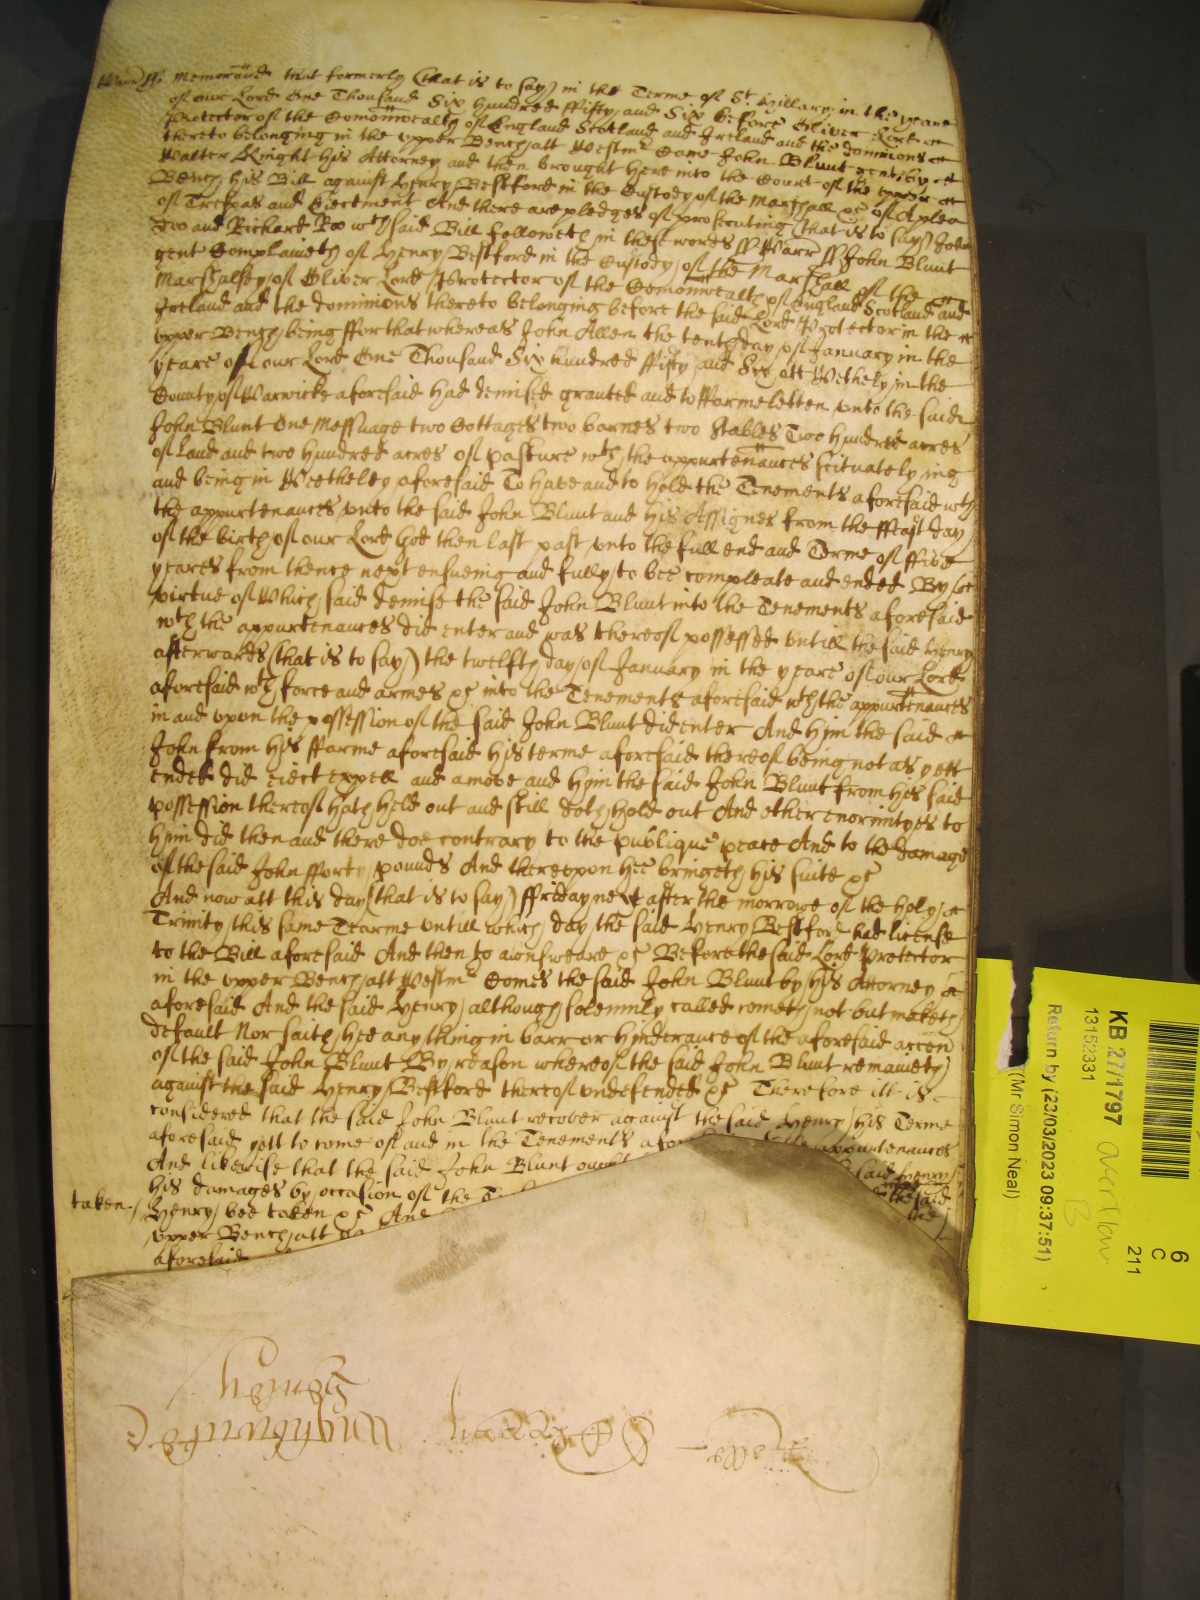 Warr ss. Memorand that formerly (that is to say) in the Terme of St. Hillary in the yeare
of our Lord One Thousand Six hundred ffifty and Six before Oliver Lord
Protector of the Comonwealth of England Scotland and Ireland and the dominions
thereto belonging in the upper Bench att Westmr Came John Blunt gent by
Walter Knight his Attorney and then brought here into the Court of the upper
Bench his Bill against Henry Bestford in the Custody of the Marshall &c of A plea
of Trespas and Ejectment And there are pledges of prosecuting (that is to say) John
Doo and Richard Roo wch said Bill followeth in these words ss Warr ss John Blunt
gent Complaineth of Henry Bestford in the Custody of the Marshall of the
Marshalsey of Oliver Lord Protector of the Comonwealth of England Scotland and
Ireland and the dominions thereto belonging before the said Lord Protector in the
upper Bench being ffor that whereas John Allen the tenth day of January in the
yeare of our Lord One Thousand Six hundred ffifty and Six att Wethely in the
County of Warwicke aforesaid had demised granted and to ffarme letten unto the said
John Blunt One Messuage two Cottages two barnes two Stables Two hundred acres
of Land and two hundred acres of pasture wth the appurtenances scituate lying
and being in Weetheley aforesaid To have and to hold the Tenements aforesaid wth
the appurtenances unto the said John Blunt and his Assignes from the ffeast day
of the birth of our Lord God then last past unto the full end and Terme of ffive
yeares from thence next ensueing and fully to bee compleate and ended By
virtue of Which said demise the said John Blunt into the Tenements aforesaid
wth the appurtenances did enter and was thereof possessed untill the said Henry
afterwards (that is to say) the twelfth day of January in the yeare of our Lord
aforesaid wth force and armes &c into the Tenements aforesaid wth the appurtenances
in and upon the possession of the said John Blunt did enter And him the said
John from his ffarme aforesaid his terme aforesaid thereof being not as yett
ended did eject expell and amove and him the said John Blunt from his said
possession thereof hath held out and still doth hold out And other enormityes to
him did then and there doe contrary to the publique peace And to the damage
of the said John fforty pounds And thereupon hee bringeth his suite &c
And now att this day (that is to say) ffriday next after the morrowe of the holy
Trinity this same Tearme untill which day the said Henry Bestford had license
to the Bill aforesaid And then to aunsweare &c Before the said Lord Protector
in the upper Bench att Westmr Comes the said John Blunt by his Attorney
aforesaid And the said Henry although solemnly called cometh not but maketh
default Nor saith hee any thing in barr or hinderance of the aforesaid accon
of the said John Blunt By reason whereof the said John Blunt remaineth
against the said Henry Bestford thereof undefended &c Therefore itt is
considered that the said John Blunt recover against the said Henry his Terme
aforesaid yett to come of and in the Tenements afor appurtenances
And likewise that the said John Blunt ought said Henry
his damages by occasion of the the said
taken. Henry bee taken &c And the
upper Bench att
aforesaid
KB 27/1797 overflow B
13152331
Return by (23/03/2023 09:37:51)
(Mr Simon Neal)
6
C
211